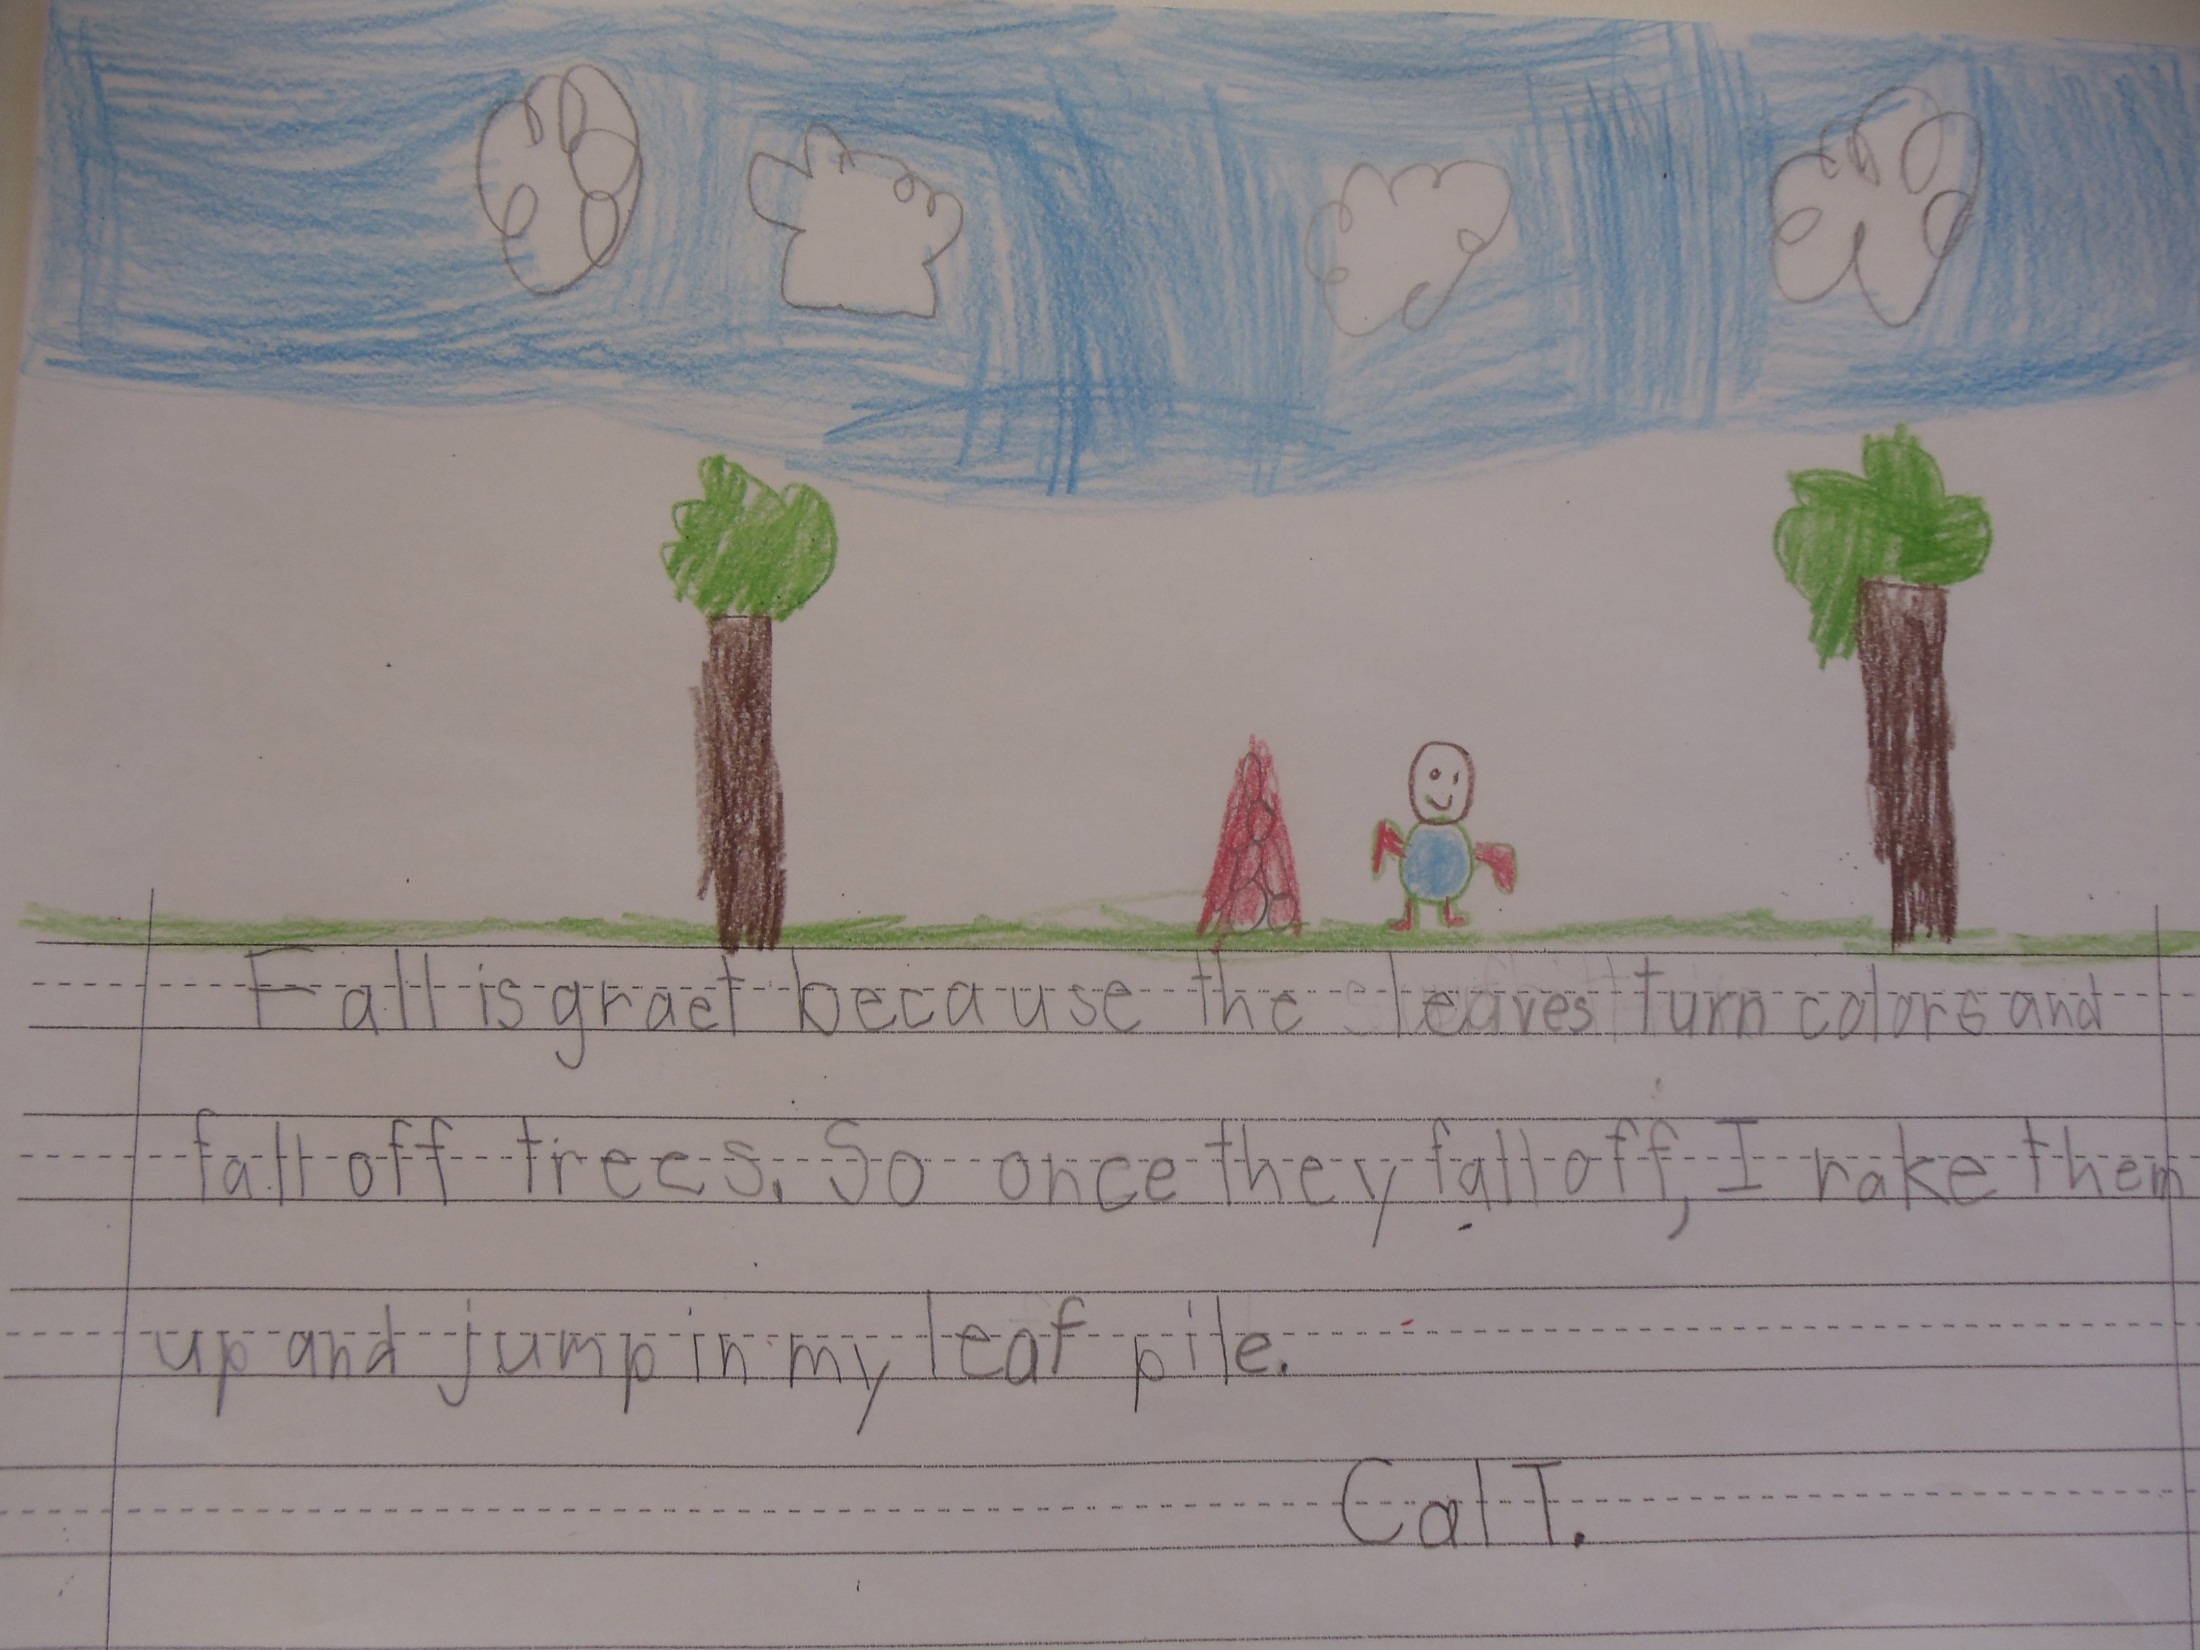 Fall is graet because the leaves turn colors and
fall off trees. So once they fall off, I rake them
up and jump in my leaf pile.
Cal T.